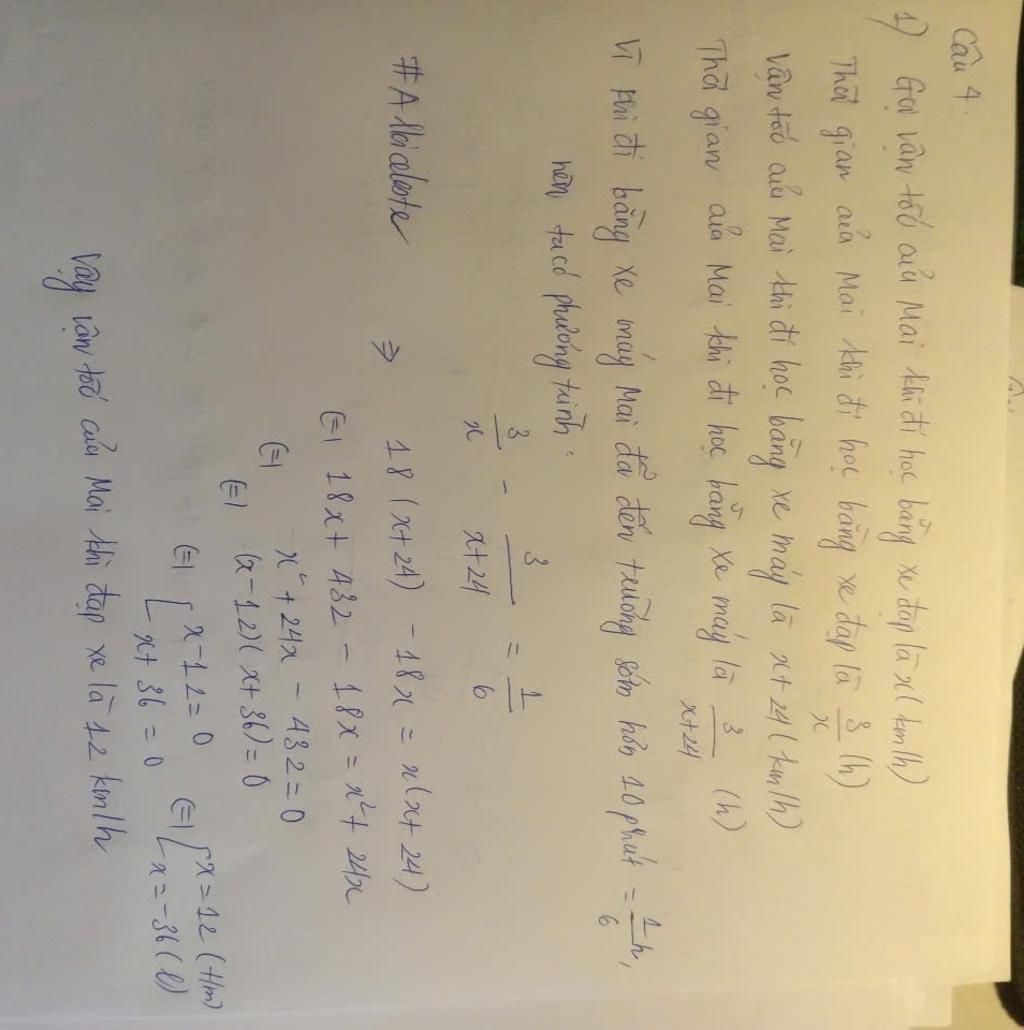 Câu 4:
1) Gọi vận tốc của Mai khi đi học bằng xe đạp là x (km/h)
Thời gian của Mai khi đi học bằng xe đạp là 3/x (h)
Vận tốc của Mai khi đi học bằng xe máy là x+24 (km/h)
Thời gian của Mai khi đi học bằng xe máy là 3/x+24 (h)
Vì khi đi bằng xe máy Mai đã đến trường sớm hơn 10 phút = 1/6 h,
nên ta có phương trình:
3/x - 3/x+24 = 1/6
#Albiceleste ⇒ 18(x+24) - 18x = x(x+24)
⇔ 18x + 432 - 18x = x² + 24x
⇔ x² + 24x - 432 = 0
⇔ (x-12)(x+36) = 0
⇔ [ x-12=0 ⇔ [ x=12 (t/m)
x+36=0 x=-36 (l)
Vậy vận tốc của Mai khi đạp xe là 12 km/h